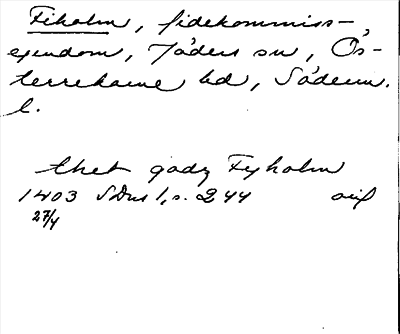 Fiholm, fidekommiss-
egendom, Jäders sn, Ös-
terrekarne hd, Söderm.
l.
thet godz Fyholm
1403 SDns 1, s. 244 avskr
27/4